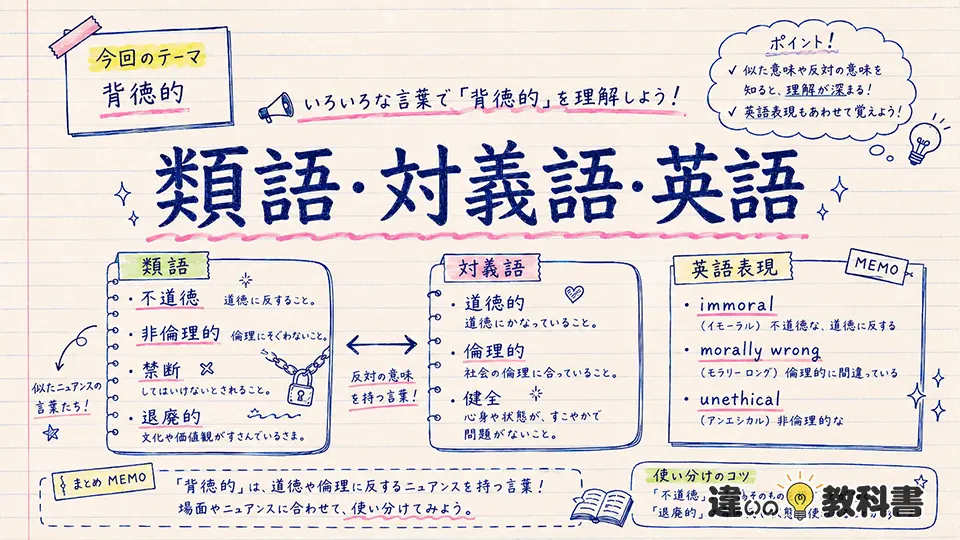 今回のテーマ
背徳的
いろいろな言葉で「背徳的」を理解しよう!
ポイント!
✓ 似た意味や反対の意味を
知ると、理解が深まる!
✓ 英語表現もあわせて覚えよう!
類語・対義語・英語
類語
・不道徳 道徳に反すること。
・非倫理的 倫理にそぐわないこと。
・禁断
してはいけないとされること。
・退廃的
文化や価値観がすさんでいるさま。
似たニュアンスの
言葉たち!
反対の意味
を持つ言葉!
対義語
・道徳的
道徳にかなっていること。
・倫理的
社会の倫理に合っていること。
・健全
心身や状態が、すこやかで
問題がないこと。
英語表現
MEMO
・immoral
(イモーラル) 不道徳な、道徳に反する
・morally wrong
(モラリー ロング) 倫理的に間違っている
・unethical
(アンエシカル) 非倫理的な
まとめ MEMO
「背徳的」は、道徳や倫理に反するニュアンスを持つ言葉!
場面やニュアンスに合わせて、使い分けてみよう。
使い分けのコツ
「不道徳」
「退廃的」
違いの教科書